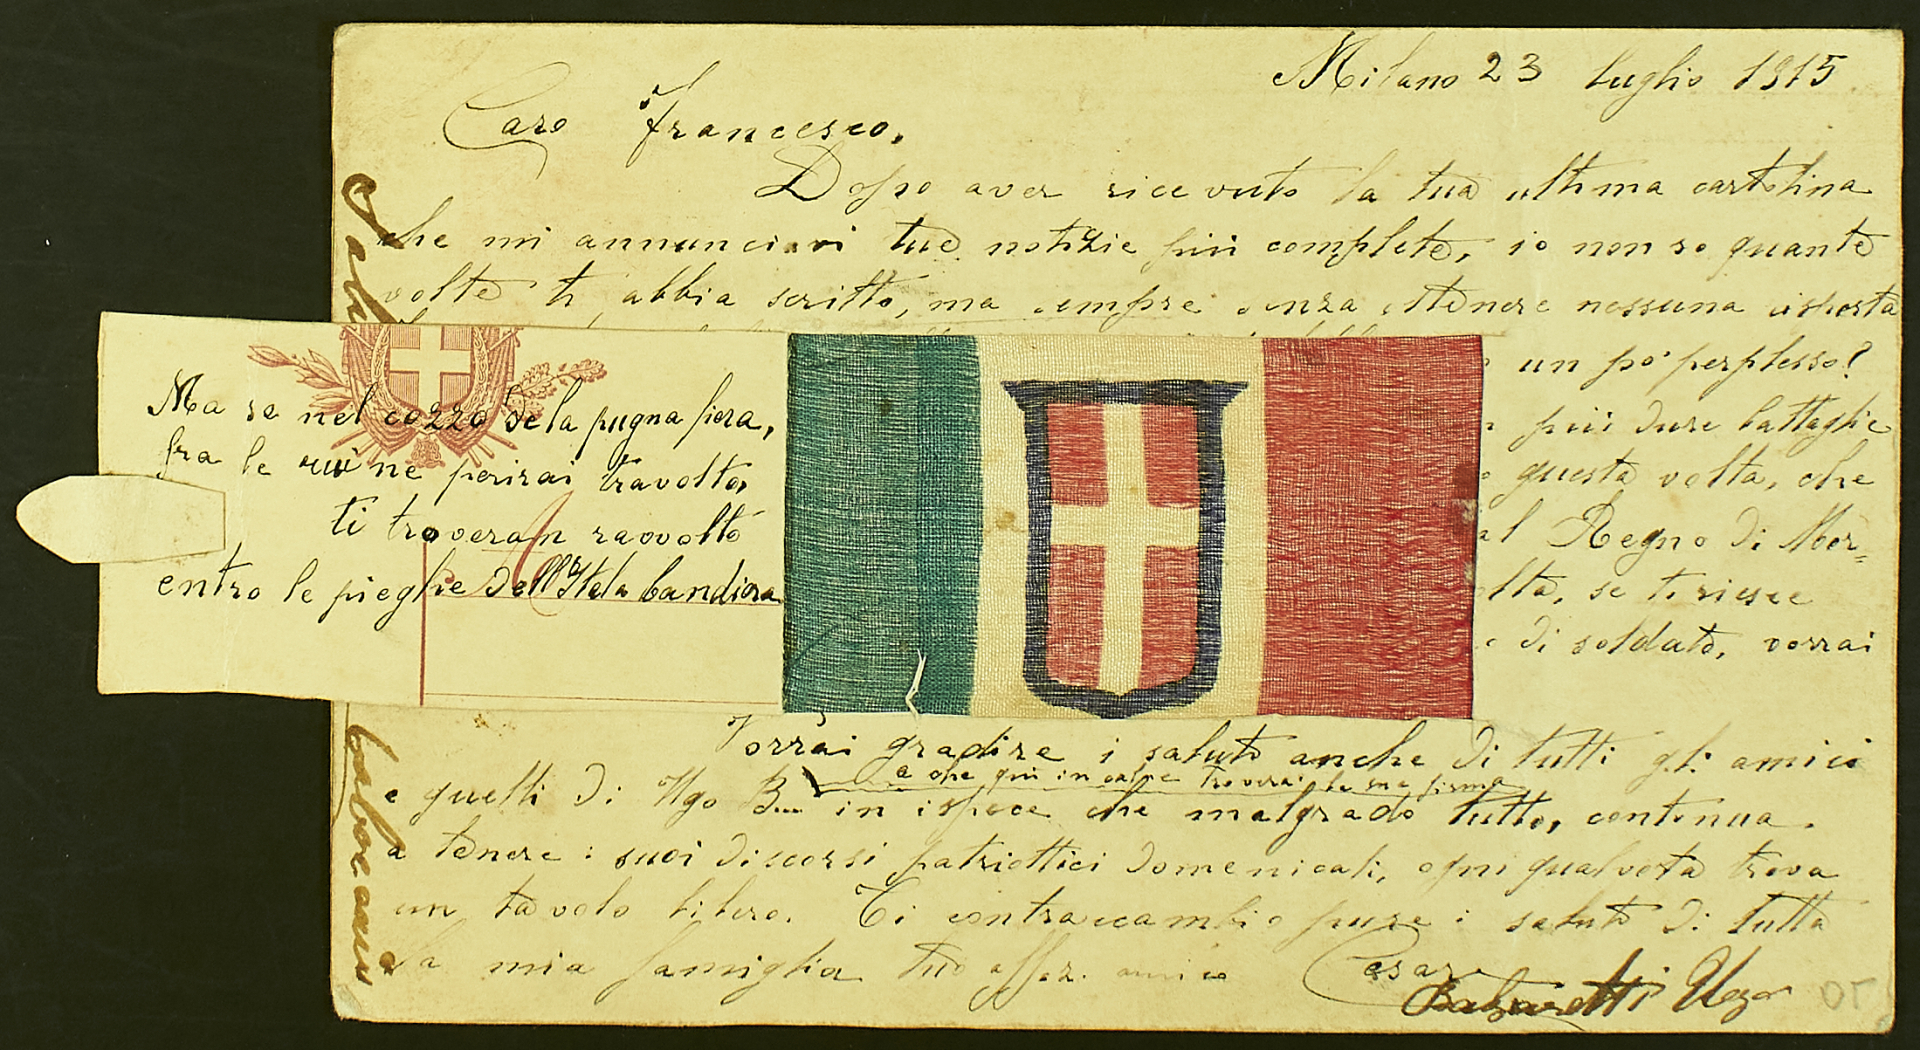 Milano 23 luglio 1915
Caro Francesco,
Dopo aver ricevuto la tua ultima cartolina
che mi annunciavi tue notizie più complete, io non so quante
volte ti abbia scritto, ma sempre senza ottenere nessuna risposta
un po' perplesso?
più dure battaglie
questa volta, che
al Regno di Mor=
se ti riesce
di soldato, vorrai
Ma se nel cozzo de la pugna fiera,
fra le ruine perirai travolto,
ti troveran ravvolto
entro le pieghe dell'Itala bandiera
Vorrai gradire i saluti anche di tutti gli amici
e che qui in calce troverai la sua firma
e quelli di Ugo B... in ispece che malgrado tutto, continua
a tenere i suoi discorsi patriottici domenicali, ogni qualvolta trova
un tavolo libero. Ti contraccambio pure i saluti di tutta
la mia famiglia tuo affez. amico Cesare
Ugo